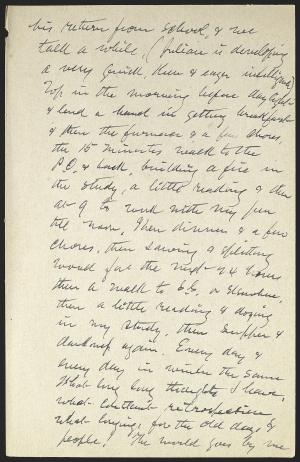 his return from school, & we
talk a while. (Julian is developing
a very quick, keen & eager intelligence)
Up in the morning before daylight
& lend a hand in getting breakfast
& then the furnace & a few chores,
the 15 minutes walk to the
P.O. & back, building a fire in
the study, a little reading & then
at 9 to work with my pen
till noon. Then dinner & a few
chores, then sawing & splitting
wood for the next 24 hours
then a walk to
then a little reading & dozing
in my study, then supper &
darkness again. Every day &
every day in winter the same
What long long thoughts I have,
what constant retrospection
what longing for the old days &
people! The world goes by me